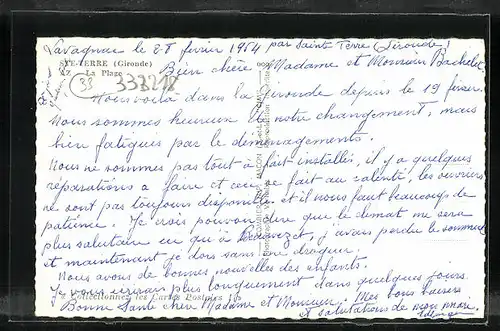 Lavagnac le 28 février 1964 par Sainte Terre (Gironde)
STE-TERRE (Gironde)
Bien chère Madame et Monsieur Bachelet
La Plage
(33) 333218
Nous voilà dans la Gironde depuis le 19 février.
Nous sommes heureux de notre changement, mais
bien fatigués par le déménagement.
Nous ne sommes pas tout à fait installés, il y a quelques
réparations a faire et ceci se fait au ralenti, les ouvriers
ne sont pas toujours disponible et il nous faut beaucoup de
patience. Je crois pouvoir dire que le climat me sera
plus salutaire car qu'à Beauvezet, j'avais perdu le sommeil
et maintenant je dors sans une drogue.
Nous avons de bonnes nouvelles des enfants.
Je vous écrirai plus longuement dans quelques jours.
Collectionnez les Cartes Postales
Bonne Santé cher Madame et Monsieur. Mes bons baisers
et salutations de mon mari.